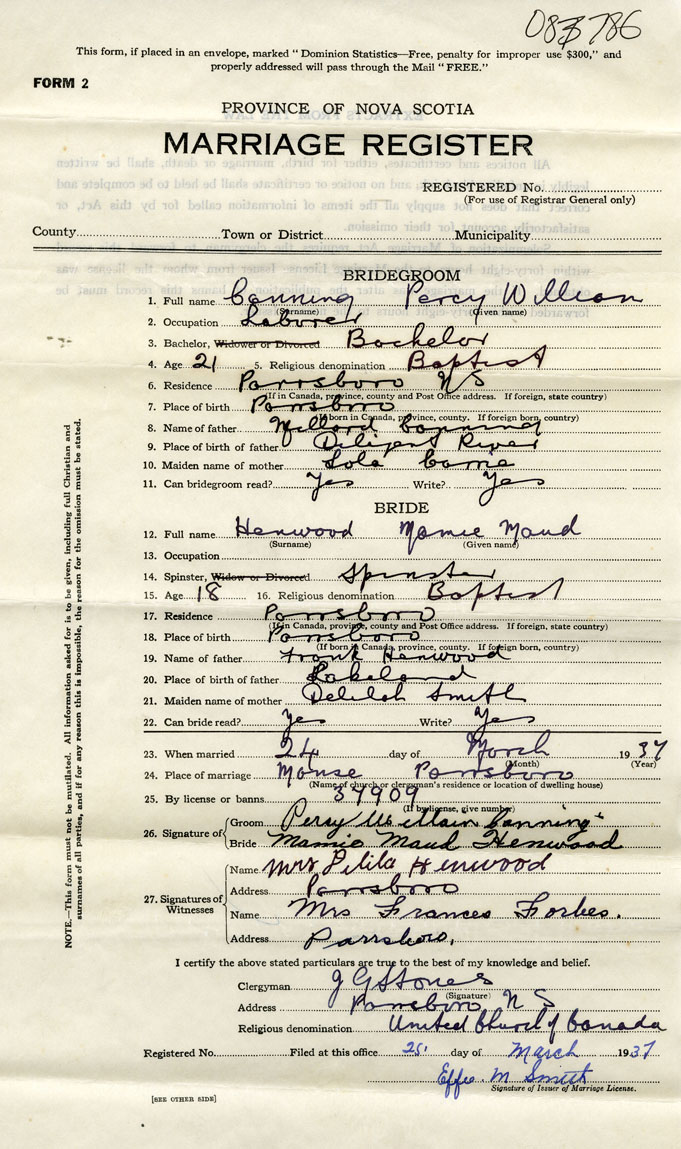 083786
This form, if placed in an envelope, marked "Dominion Statistics—Free, penalty for improper use $300," and
properly addressed will pass through the Mail "FREE."
FORM 2
PROVINCE OF NOVA SCOTIA
MARRIAGE REGISTER
REGISTERED No.
(For use of Registrar General only)
County Town or District Municipality
BRIDEGROOM
1. Full name Canning Percy William
(Surname) (Given name)
2. Occupation Laborer
3. Bachelor, Widower or Divorced Bachelor
4. Age 21 5. Religious denomination Baptist
6. Residence Parrsboro N S
(If in Canada, province, county and Post Office address. If foreign, state country)
7. Place of birth Parrsboro
(If born in Canada, province, county. If foreign born, country)
8. Name of father Millard Canning
9. Place of birth of father Diligent River
10. Maiden name of mother Lola
11. Can bridegroom read? Yes Write? Yes
BRIDE
12. Full name Henwood Mamie Maud
(Surname) (Given name)
13. Occupation
14. Spinster, Widow or Divorced Spinster
15. Age 18 16. Religious denomination Baptist
17. Residence Parrsboro
(If in Canada, province, county and Post Office address. If foreign, state country)
18. Place of birth Parrsboro
(If born in Canada, province, county. If foreign born, country)
19. Name of father Frank Henwood
20. Place of birth of father Lakeland
21. Maiden name of mother Delilah Smith
22. Can bride read? Yes Write? Yes
23. When married 24 day of March 1937
(Month) (Year)
24. Place of marriage Manse Parrsboro
(Name of church or clergyman's residence or location of dwelling house)
25. By license or banns 37909
(If by license, give number)
26. Signature of { Groom Percy William Canning
Bride Mamie Maud Henwood
27. Signatures of Witnesses { Name Mrs Henwood
Address Parrsboro
Name Mrs Frances Forbes.
Address Parrsboro.
I certify the above stated particulars are true to the best of my knowledge and belief.
Clergyman
(Signature)
Address Parrsboro N S
Religious denomination United Church of Canada
Registered No. Filed at this office 25. day of March 1937
Effie M Smith
Signature of Issuer of Marriage License.
[SEE OTHER SIDE]
NOTE.—This form must not be mutilated. All information asked for is to be given, including full Christian and
surnames of all parties, and if for any reason this is impossible, the reason for the omission must be stated.